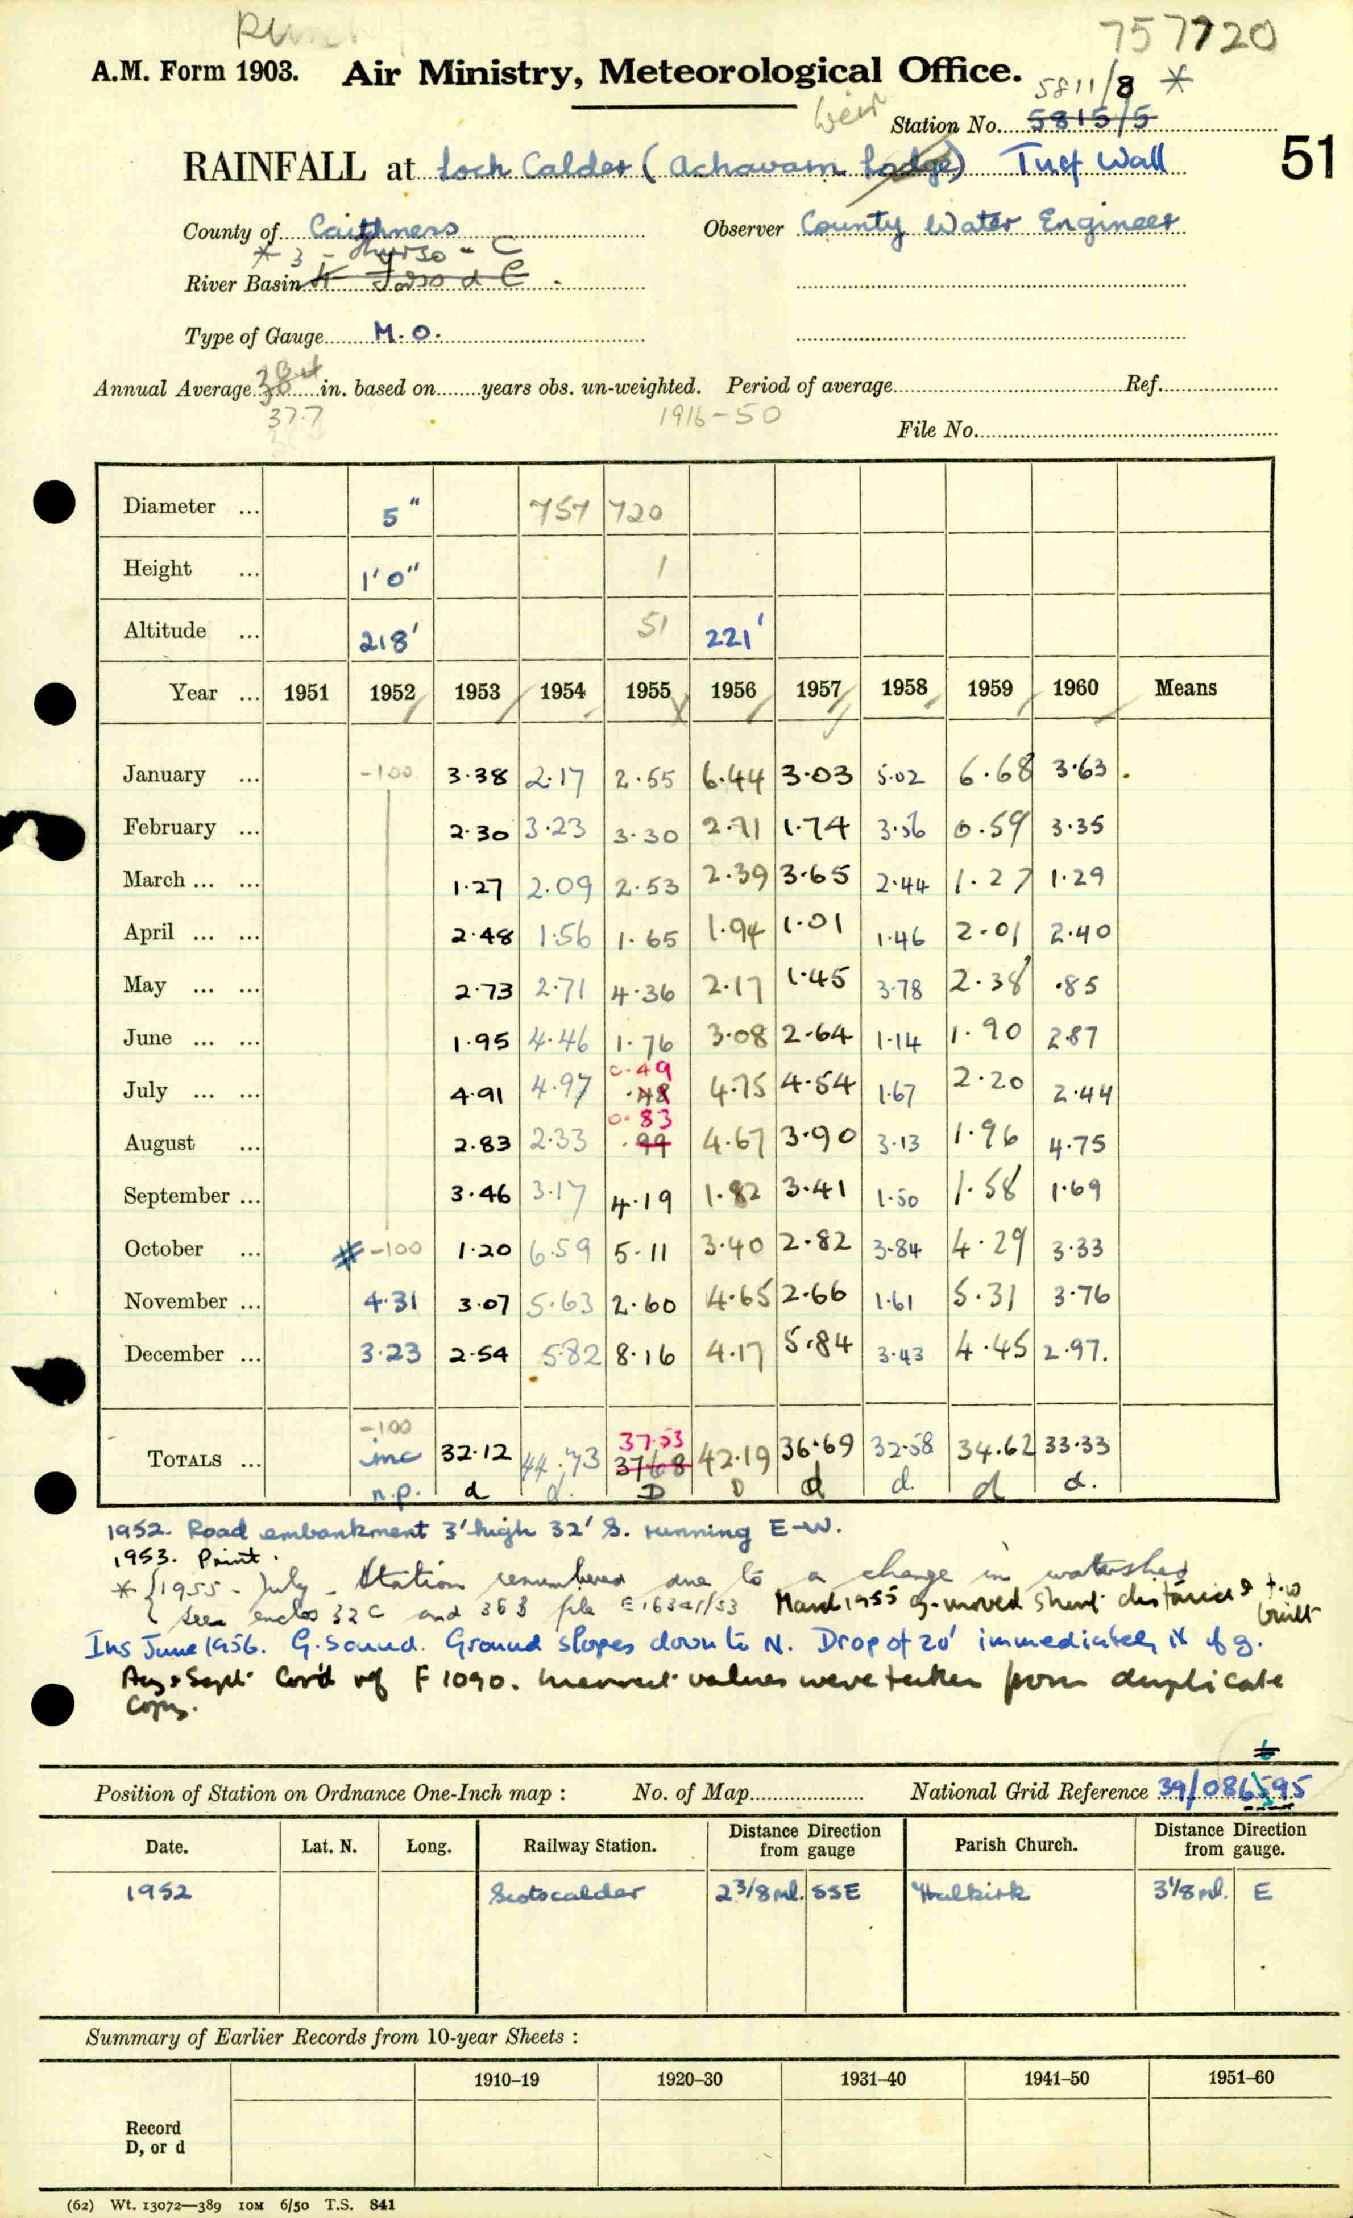 757720
A.M. Form 1903. Air Ministry, Meteorological Office.
5811/8 *
Weir
Station No. 5815/5
51
RAINFALL at Loch Calder (Achavarn Lodge) Turf Wall
County of Caithness Observer County Water Engineer
* 3 - Thurso - C
River Basin
Type of Gauge M.O.
Annual Average in. based on years obs. un-weighted. Period of average Ref.
37.7 1916-50
File No.
Diameter ... 5" 757 720
Height ... 1'0" 1
Altitude ... 218' 51 221'
Year ... 1951 1952 1953 1954 1955 1956 1957 1958 1959 1960 Means
January ... -100 3.38 2.17 2.55 6.44 3.03 5.02 6.68 3.63
February ... 2.30 3.23 3.30 2.71 1.74 3.56 0.59 3.35
March ... ... 1.27 2.09 2.53 2.39 3.65 2.44 1.27 1.29
April ... ... 2.48 1.56 1.65 1.94 1.01 1.46 2.01 2.40
May ... ... 2.73 2.71 4.36 2.17 1.45 3.78 2.38 .85
June ... ... 1.95 4.46 1.76 3.08 2.64 1.14 1.90 2.87
0.49
July ... ... 4.91 4.97 .48 4.75 4.54 1.67 2.20 2.44
0.83
August ... 2.83 2.33 .99 4.67 3.90 3.13 1.96 4.75
September ... 3.46 3.17 4.19 1.82 3.41 1.50 1.58 1.69
October ... # -100 1.20 6.59 5.11 3.40 2.82 3.84 4.29 3.33
November ... 4.31 3.07 5.63 2.60 4.65 2.66 1.61 5.31 3.76
December ... 3.23 2.54 5.82 8.16 4.17 5.84 3.43 4.45 2.97.
-100 37.53
TOTALS ... inc 32.12 44.73 37.68 42.19 36.69 32.58 34.62 33.33
n.p. d d. D D d d. d d.
1952. Road embankment 3' high 32' S. running E-W.
1953. Print.
* { 1955 - July - Station renumbered due to a change in watershed
{ seen enclos 32C and 36B file March 1955 g. moved short distance & t.w built
Ins June 1956. G. Sound. Ground slopes down to N. Drop of 20' immediately N of g.
Aug & Sept Cor'd ref F 1090. Incorrect values were taken from duplicate
copy.
6
Position of Station on Ordnance One-Inch map : No. of Map National Grid Reference 39/086595
Date. Lat. N. Long. Railway Station. Distance Direction from gauge Parish Church. Distance Direction from gauge.
1952 Scotscalder 2 3/8 ml. SSE Halkirk 3 1/8 ml. E
Summary of Earlier Records from 10-year Sheets :
1910–19 1920–30 1931–40 1941–50 1951–60
Record
D, or d
(62) Wt. 13072—389 10M 6/50 T.S. 841